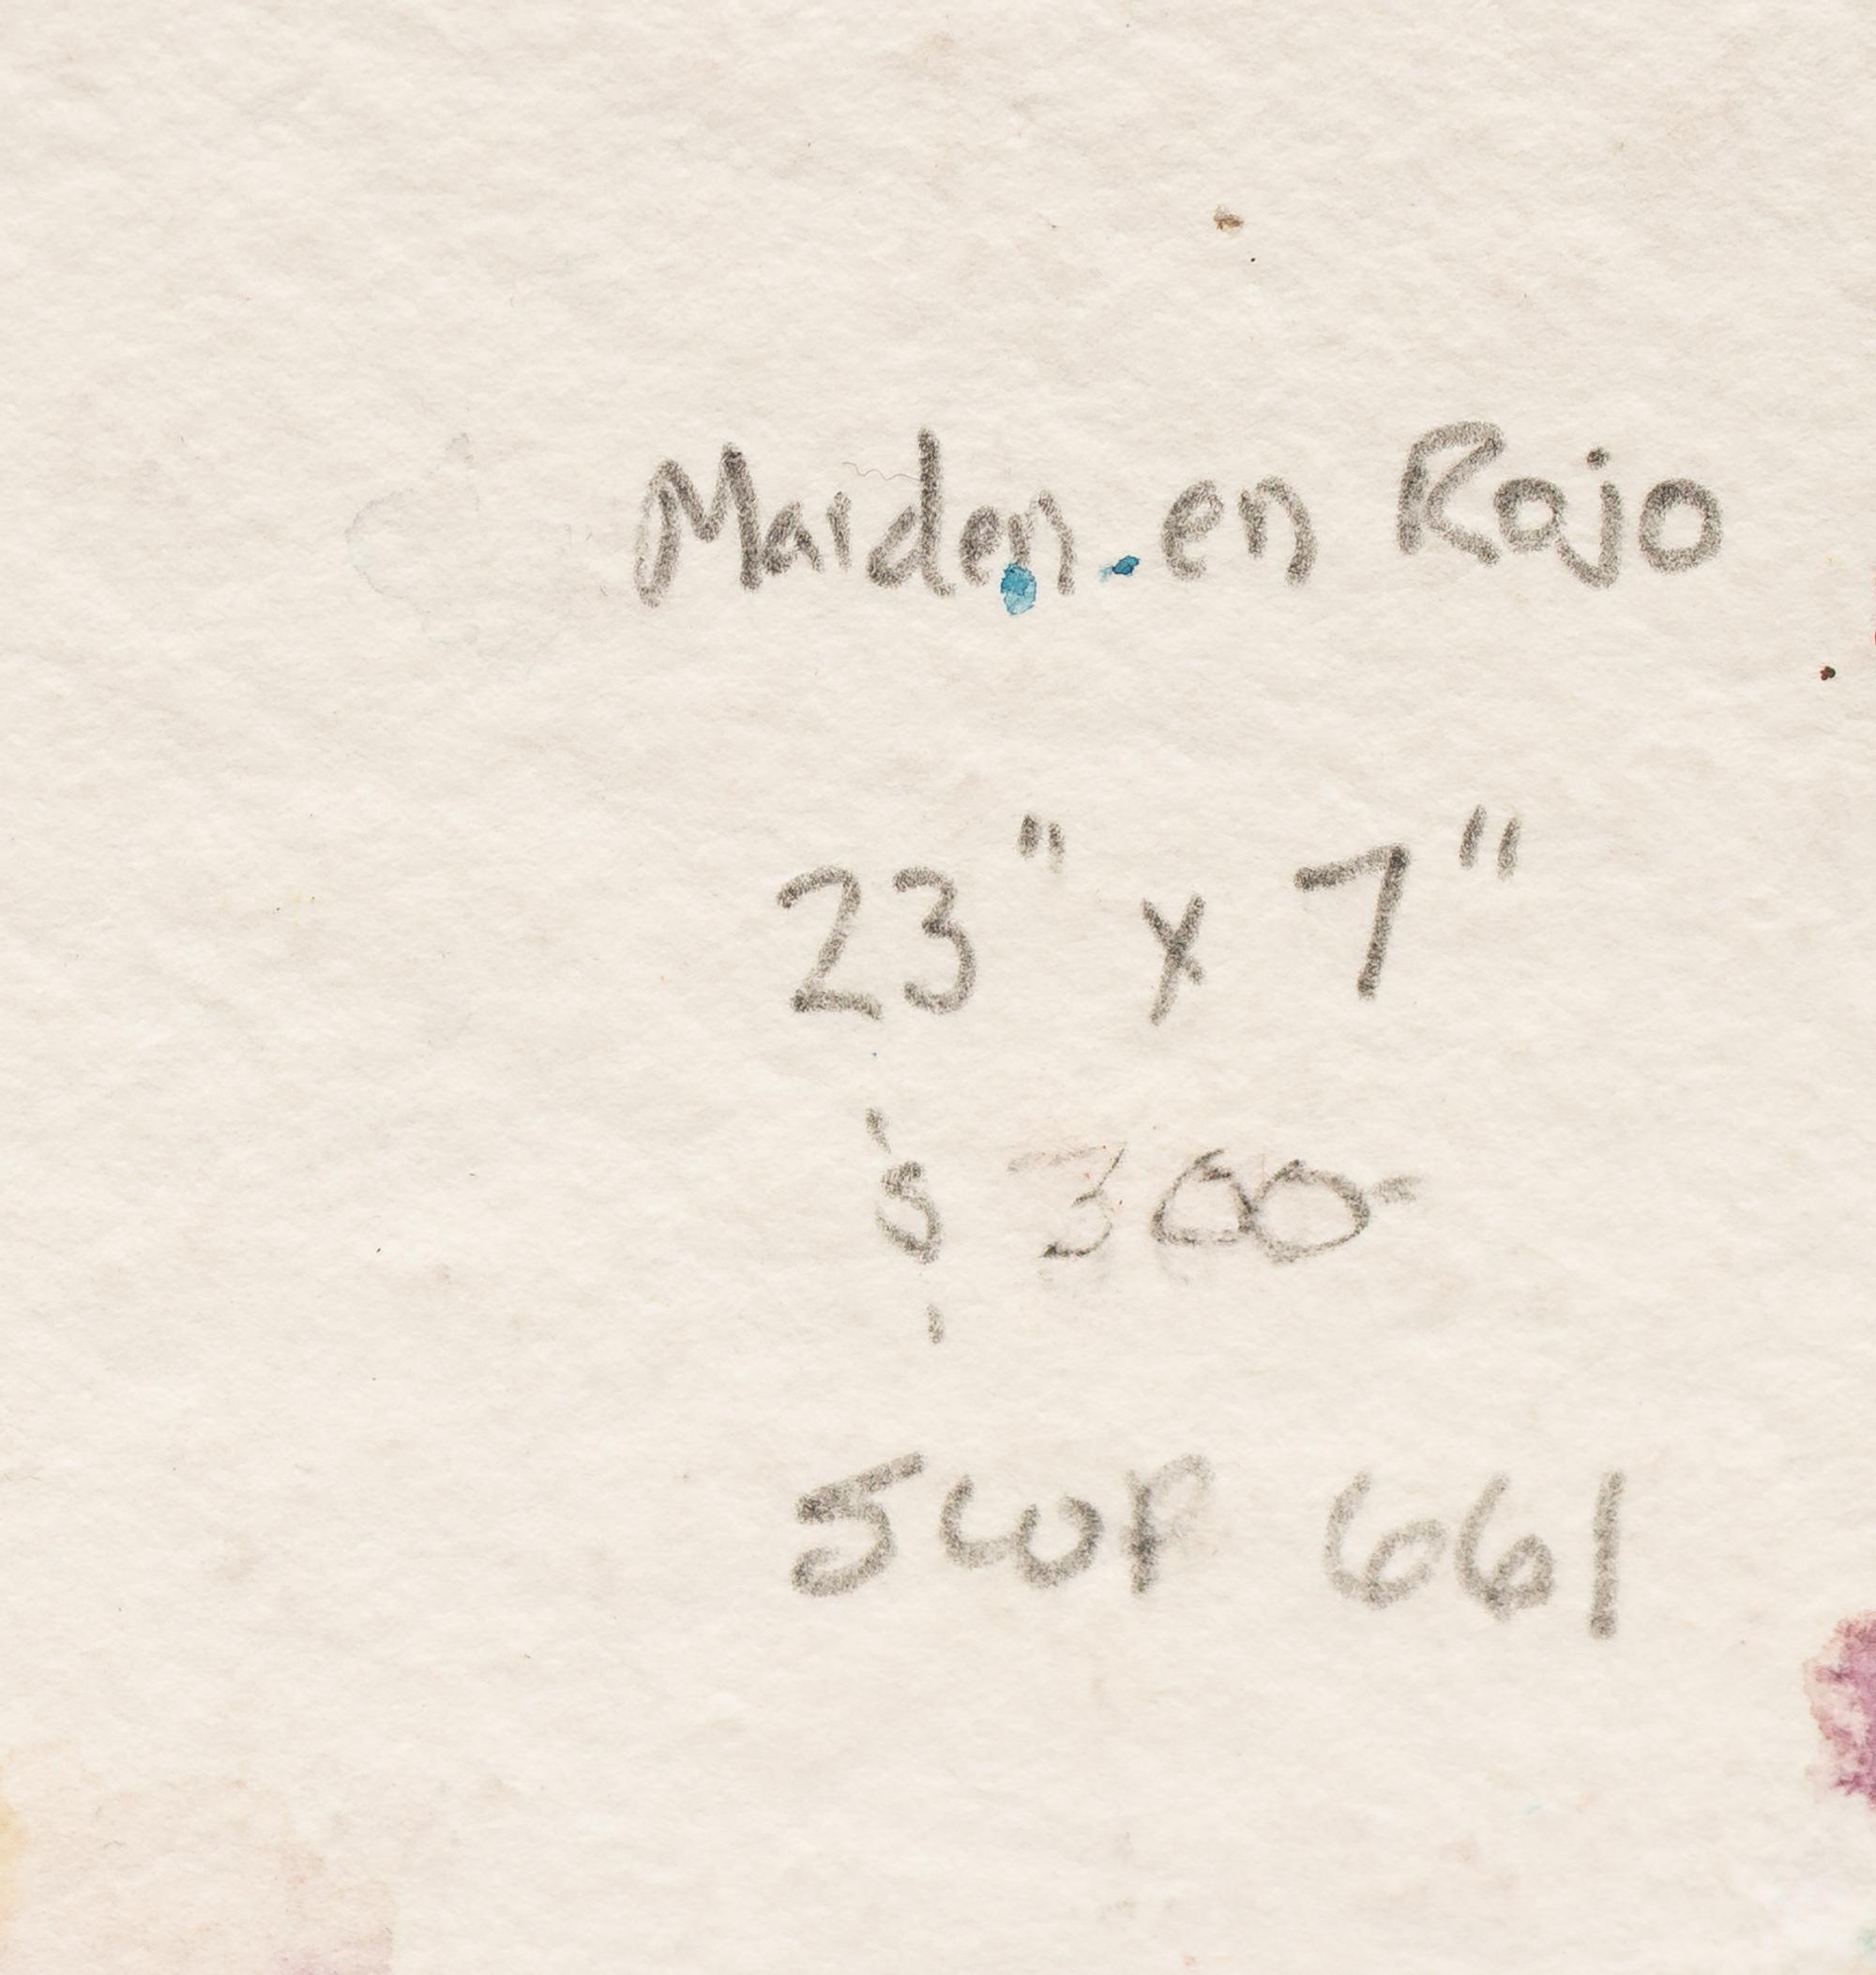 Maiden en Rojo
23" x 7"
$ 300-
SWP 661